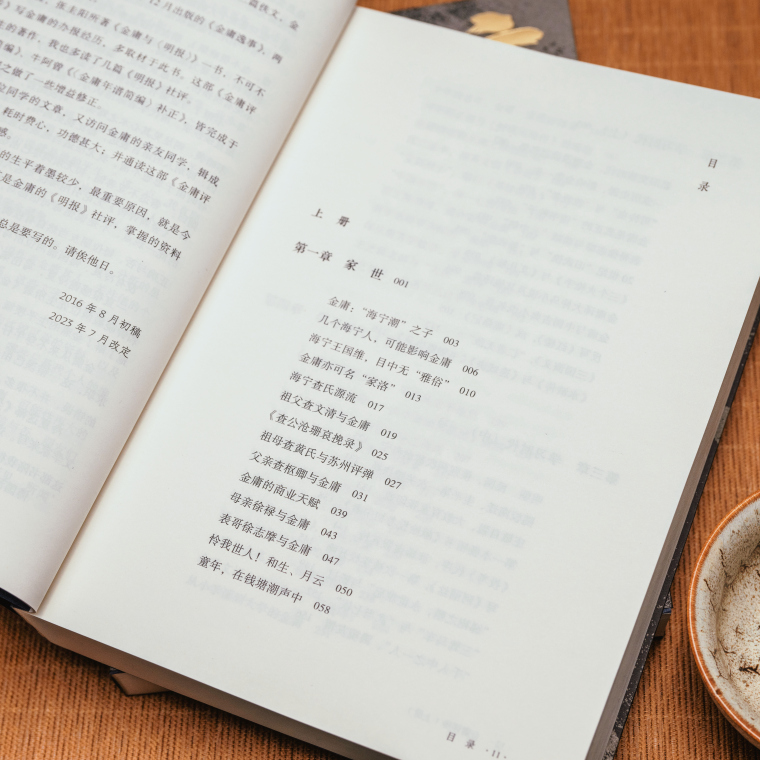 篇铁文，金
12月出版的《金庸逸事》，两
张圭阳所著《金庸与〈明报〉》一书，不可不
》写金庸的办报经历，多取材于此书。这部《金庸评
的著作。我也多读了几篇《明报》社评。
编》、牛阿曾《〈金庸年谱简编〉补正》，皆完成于
之做了一些增益修正。
位同学的文章，又访问金庸的亲友同学，辑成
耗时费心，功德甚大；并通读这部《金庸评
感。
的生平着墨较少，最重要原因，就是今
是金庸的《明报》社评，掌握的资料
总是要写的。请俟他日。
2016 年 8 月初稿
2025 年 7 月改定
目
录
上 册
第一章 家 世 001
金庸：“海宁潮”之子 003
几个海宁人，可能影响金庸 006
海宁王国维，目中无“雅俗” 010
金庸亦可名“家洛” 013
海宁查氏源流 017
祖父查文清与金庸 019
《查公沧珊哀挽录》 025
祖母查黄氏与苏州评弹 027
父亲查枢卿与金庸 031
金庸的商业天赋 039
母亲徐禄与金庸 043
表哥徐志摩与金庸 047
怜我世人！和生、月云 050
童年，在钱塘潮声中 058
目 录 ·11·